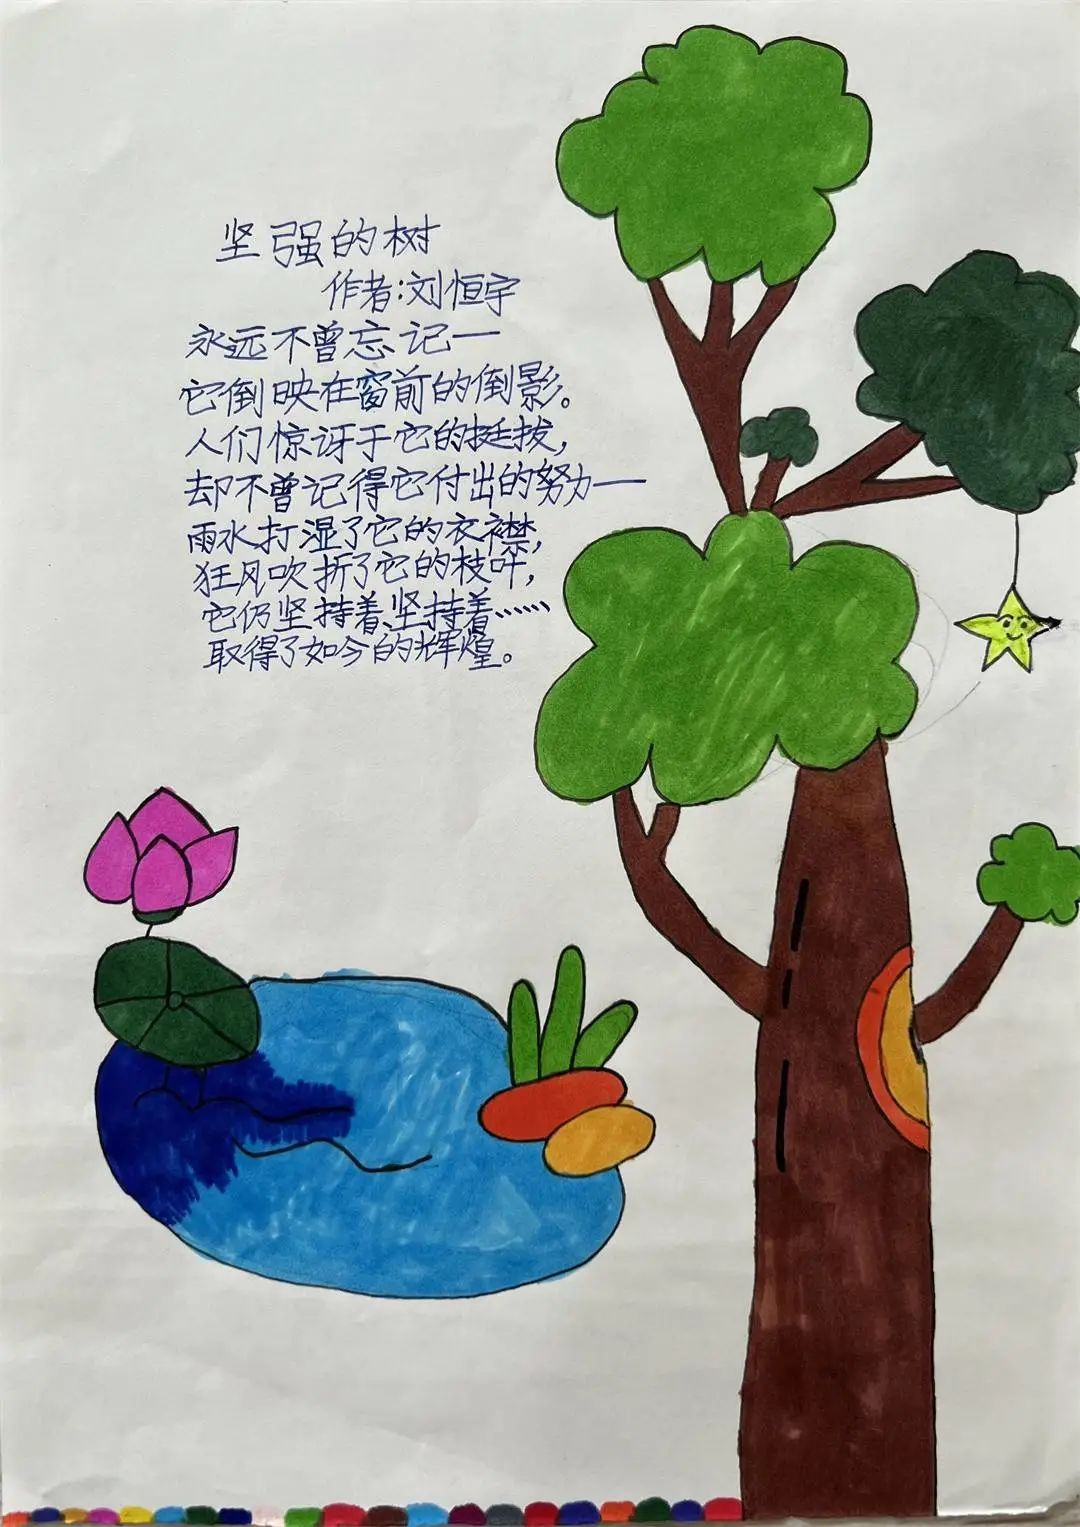 坚强的树
作者:刘恒宇
永远不曾忘记一
它倒映在窗前的倒影。
人们惊讶于它的挺拔,
却不曾记得它付出的努力——
雨水打湿了它的衣襟,
狂风吹折了它的枝叶,
它仍坚持着、坚持着……
取得了如今的辉煌。